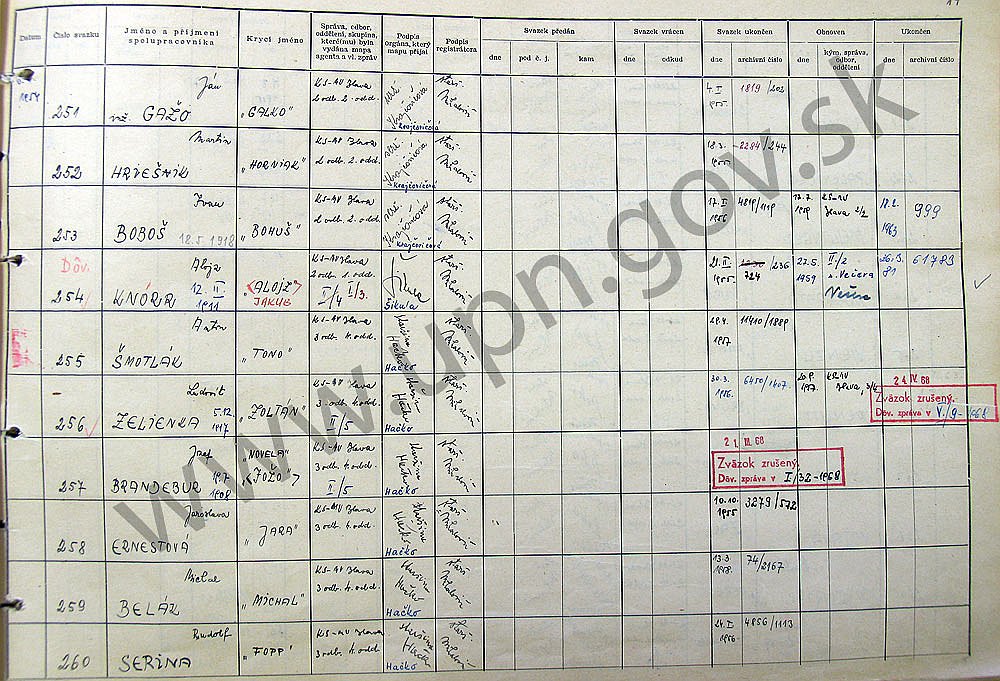 11
Datum
Číslo svazku
Jméno a příjmení
spolupracovníka
Krycí jméno
Správa, odbor,
oddělení, skupina,
které(mu) byla
vydána mapa
agenta a vl. zpráv
Podpis
orgána, který
mapu přijal
Podpis
registrátora
Svazek předán
dne
pod č. j.
kam
Svazek vrácen
dne
odkud
Svazek ukončen
dne
archivní číslo
Obnoven
dne
kým, správa,
odbor,
oddělení
Ukončen
dne
archivní číslo
1954
251
Ján
GAŽO
"GALKO"
KS-MV Ilava
2 odb. 2. odd.
Krajčovičová
4. I.
1955.
1819/203
252
Martin
HRIEŠNIK
"HORNIAK"
KS-MV Ilava
2 odb. 2. odd.
Krajčovičová
18.3.
1955.
2284/244
253
Ivan
BOBOŠ 12.5.1918
"BOHUŠ"
KS-MV Ilava
2 odb. 2. odd.
Krajčovičová
1956
4819/1119
17.7.
1959
KS-MV
Ilava 2/2
18.2.
1963
999
Dôv.
254
Alojz
KNÓRR
12. II
1911
"ALOJZ"
JAKUB
KS-MV Ilava
2 odb. 1. odd.
I/4 I/3.
Šikula
21. II.
1955.
724 /236
22.5.
1959
II/2
n. Večera
26.3.
81
61783
255
Anton
ŠMOTLÁK
"TONO"
KS-MV Ilava
3 odb. 4. odd.
Hačko
29.4.
1957
11410/1889
256
Ľudovít
ZELIENKA
5.12.
1917
"ZOLTÁN"
KS-MV Ilava
3. odb. 4. odd.
II/5
Hačko
30.3.
1956.
6450/1407
KS-MV
Ilava, 3/4
24. IV. 68
Zväzok zrušený.
Dôv. zpráva v V./9-1968
257
Jozef
BRANDEBUR
1908
"NOVELA"
"JOŽO"
KS-MV Ilava
3 odb. 4. odd.
I/5
Hačko
21. III. 68
Zväzok zrušený.
Dôv. zpráva v I/32-1968
258
Jaroslava
ERNESTOVÁ
"JARA"
KS-MV Ilava
3 odb. 4. odd.
Hačko
10.10.
1955
3279/572
259
Michal
BELÁK
"MICHAL"
KS-MV Ilava
3 odb. 4. odd.
Hačko
13.3.
1958.
74/2167
260
Rudolf
SERINA
"FOPP"
KS-MV Ilava
3 odb. 4. odd.
Hačko
24. I
1956
4856/1113
www.upn.gov.sk